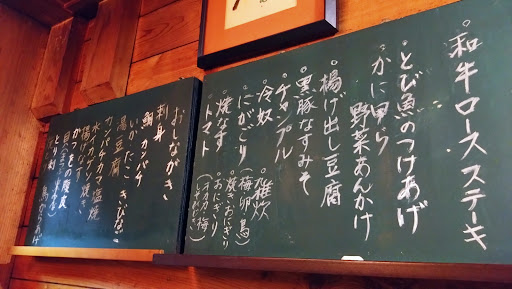 和牛ロースステーキ
とび魚のつけあげ
かに甲ら
野菜あんかけ
揚げ出し豆腐
黒豚なすみそ
チャンプル
冷奴
にがごり
焼なす
トマト
雑炊
(梅 卵 鳥)
焼きおにぎり
おにぎり
おしながき
刺身
鯛 カンパチ
いか たこ きびな
湯豆腐
カンパチカマ塩焼
かつおの腹皮